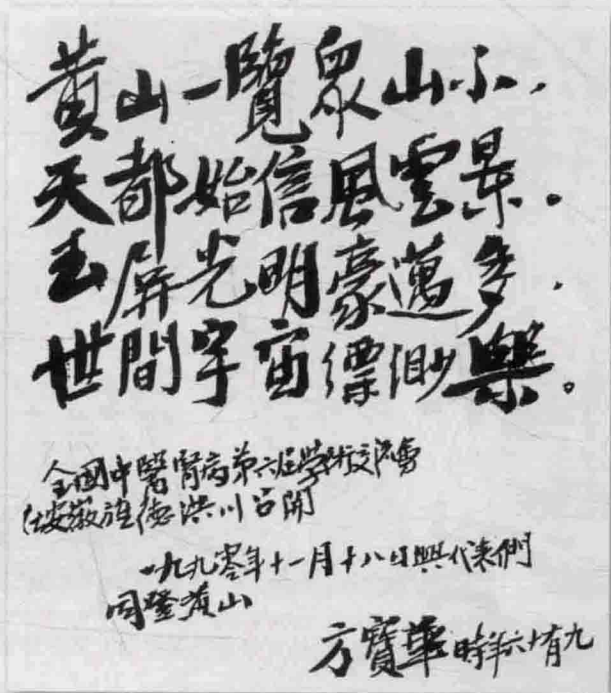 黃山一覽眾山小.
天都始信風雲景.
玉屏光明豪邁多.
世間宇宙縹緲樂。
全國中醫腎病第六屆學術交流會
在安徽旌德洪川召開
一九九零年十一月十八日與代表們
同登黃山
方寶華時年六十有九